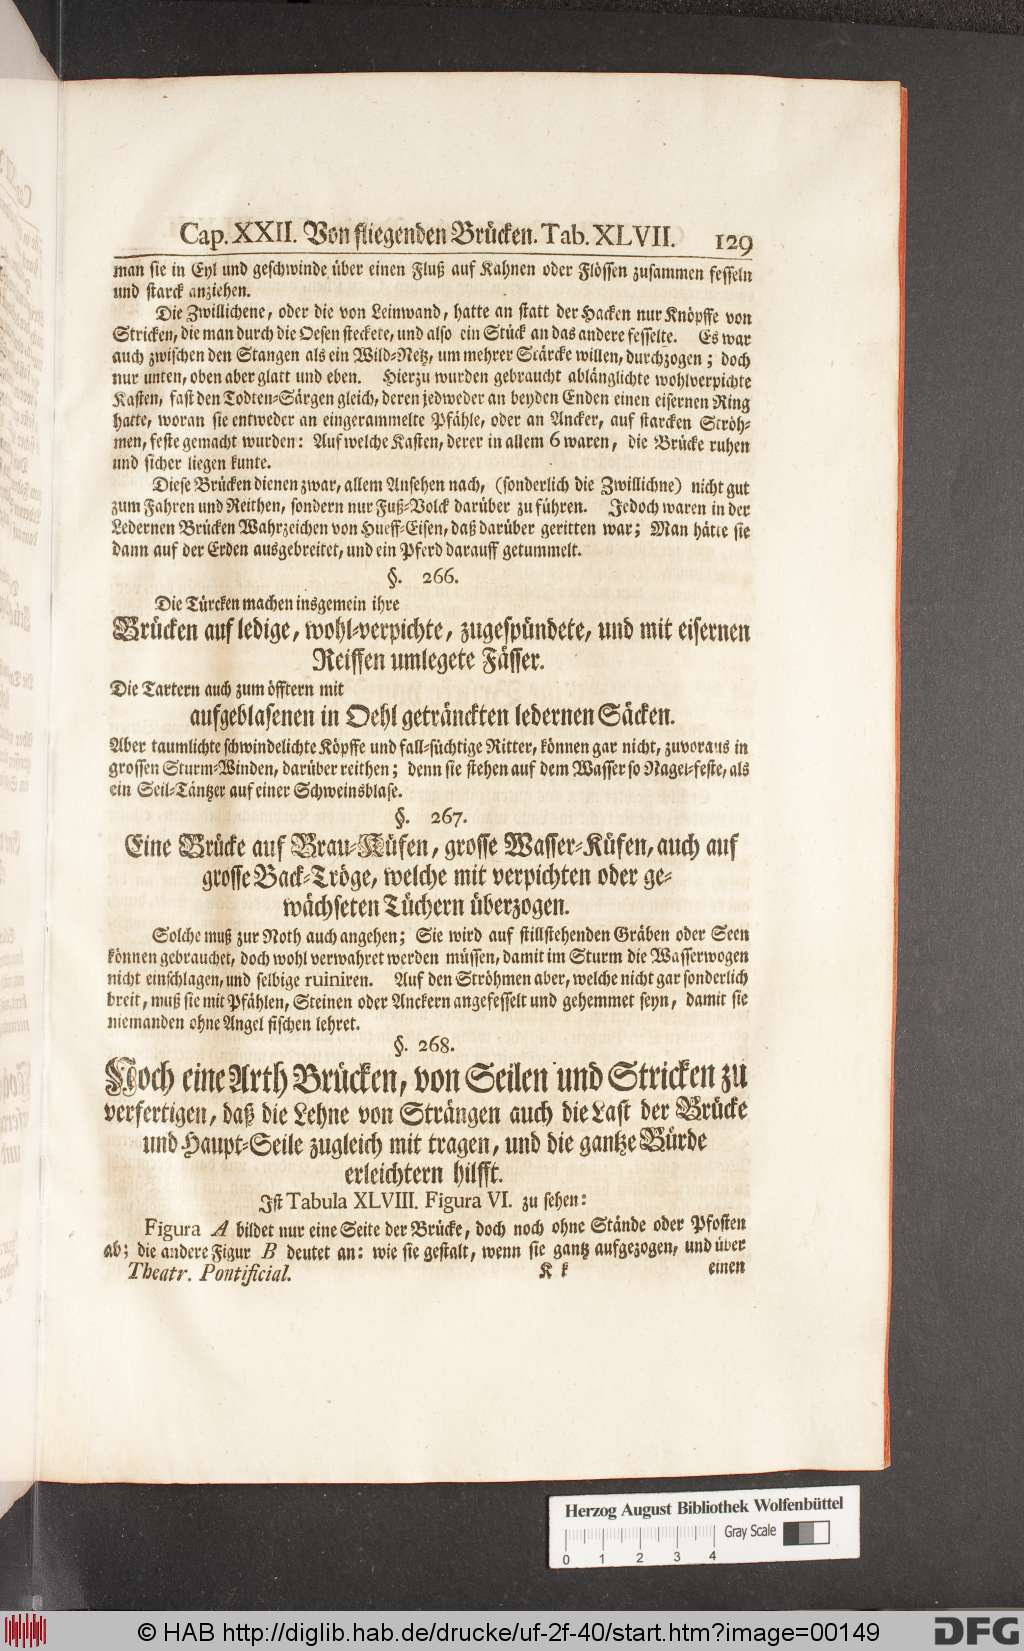 Cap. XXII. Von fliegenden Brücken. Tab. XLVII. 129
man sie in Eyl und geschwinde über einen Fluß auf Kahnen oder Flössen zusammen fesseln
und starck anziehen.
Die Zwillichene, oder die von Leinwand, hatte an statt der Hacken nur Knöpffe von
Stricken, die man durch die Oesen steckete, und also ein Stück an das andere fesselte. Es war
auch zwischen den Stangen als ein Wild-Netz, um mehrer Stärcke willen, durchzogen; doch
nur unten, oben aber glatt und eben. Hierzu wurden gebraucht ablänglichte wohlverpichte
Kasten, fast den Todten-Särgen gleich, deren jedweder an beyden Enden einen eisernen Ring
hatte, woran sie entweder an eingerammelte Pfähle, oder an Ancker, auf starcken Ströh-
men, feste gemacht wurden: Auf welche Kasten, derer in allem 6 waren, die Brücke ruhen
und sicher liegen kunte.
Diese Brücken dienen zwar, allem Ansehen nach, (sonderlich die Zwillichne) nicht gut
zum Fahren und Reithen, sondern nur Fuß-Volck darüber zu führen. Jedoch waren in der
Ledernen Brücken Wahrzeichen von Hueff-Eisen, daß darüber geritten war; Man hätte sie
dann auf der Erden ausgebreitet, und ein Pferd darauff getummelt.
§. 266.
Die Türcken machen insgemein ihre
Brücken auf ledige, wohl-verpichte, zugespündete, und mit eisernen
Reiffen umlegete Fässer.
Die Tartern auch zum öfftern mit
aufgeblasenen in Oehl geträncktem ledernen Säcken.
Aber taumlichte schwindelichte Köpffe und fall-süchtige Ritter, können gar nicht, zuvoraus in
grossen Sturm-Winden, darüber reithen; denn sie stehen auf dem Wasser so Nagel-feste, als
ein Seil-Täntzer auf einer Schweinsblase.
§. 267.
Eine Brücke auf Brau-Küfen, grosse Wasser-Küfen, auch auf
grosse Back-Tröge, welche mit verpichten oder ge-
wächseten Tüchern überzogen.
Solche muß zur Noth auch angehen; Sie wird auf stillstehenden Gräben oder Seen
können gebrauchet, doch wohl verwahret werden müssen, damit im Sturm die Wasserwogen
nicht einschlagen, und selbige ruiniren. Auf den Ströhmen aber, welche nicht gar sonderlich
breit, muß sie mit Pfählen, Steinen oder Anckern angefesselt und gehemmet seyn, damit sie
niemanden ohne Angel fischen lehret.
§. 268.
Noch eine Arth Brücken, von Seilen und Stricken zu
verfertigen, daß die Lehne von Strängen auch die Last der Brücke
und Haupt-Seile zugleich mit tragen, und die gantze Bürde
erleichtern hilfft.
Ist Tabula XLVIII. Figura VI. zu sehen:
Figura A bildet nur eine Seite der Brücke, doch noch ohne Stände oder Pfosten
ab; die andere Figur B deutet an: wie sie gestalt, wenn sie gantz aufgezogen, und über
Theatr. Pontificial. K k einen
Herzog August Bibliothek Wolfenbüttel
Gray Scale
0 1 2 3 4
© HAB http://diglib.hab.de/drucke/uf-2f-40/start.htm?image=00149
DFG